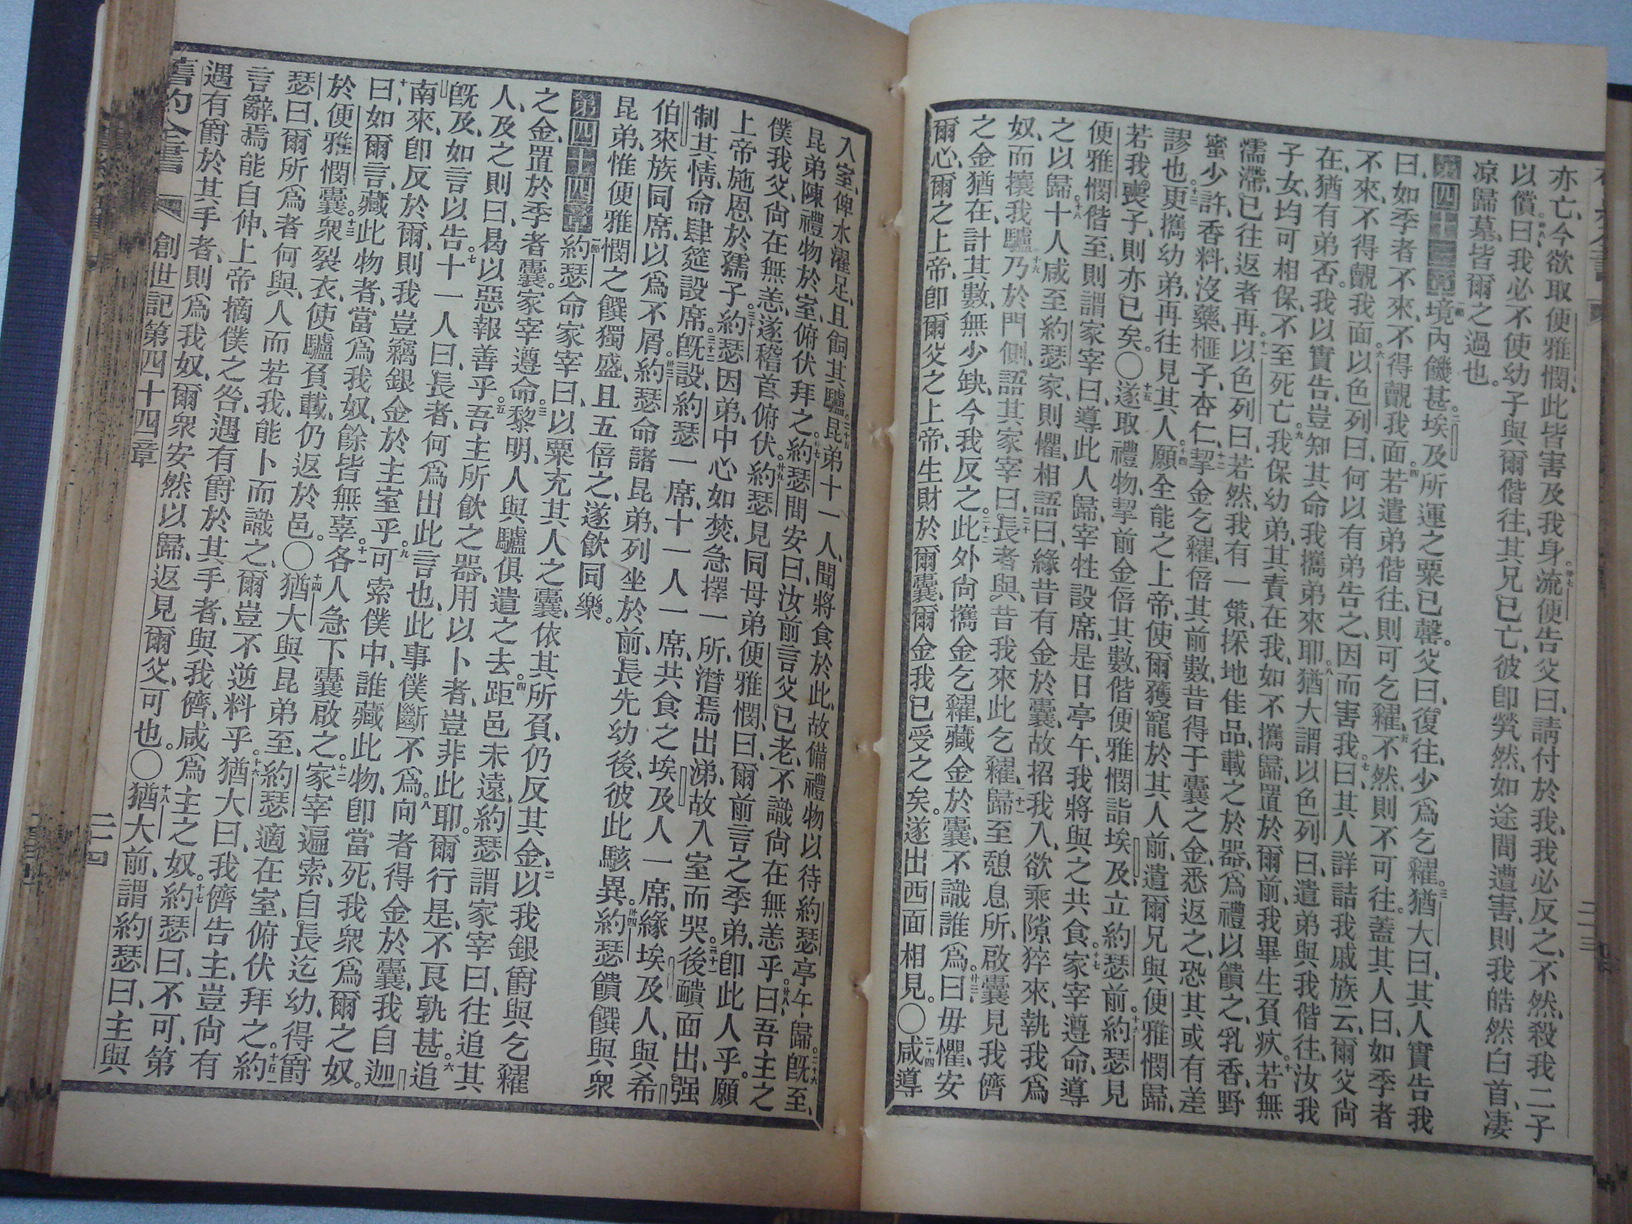 亦亡、今欲取便雅憫、此皆害及我身。流便告父曰、請付於我、我必反之、不然、殺我二子
以償、曰、我必不使幼子與爾偕往、其兄已亡、彼卽煢然、如途間遭害、則我皓然白首、凄
凉歸墓、皆爾之過也。
第四十三章 境內饑甚、埃及所運之粟已罄。父曰、復往、少爲乞糴、猶大曰、其人實告我
曰、如季者不來、不得覿我面、若遣弟偕往、則可乞糴、不然、則不可往、蓋其人曰、如季者
不來、不得覿我面。以色列曰、何以有弟告之、因而害我。曰、其人詳詰我戚族云、爾父尙
在、猶有弟否、我以實告、豈知其命我攜弟來耶。猶大謂以色列曰、遣弟與我偕往、汝我
子女、均可相保、不至死亡。我保幼弟、其責在我、如不攜歸、置於爾前、我畢生負疚、若無
濡滯、已往返者再。以色列曰、若然、我有一策、採地佳品、載之於器、爲禮以饋之、乳香、野
蜜少許、香料、沒藥、榧子、杏仁、挈金乞糴、倍其前數、昔得于囊之金、悉返之、恐其或有差
謬也、更攜幼弟、再往見其人、願全能之上帝、使爾獲寵於其人前、遣爾兄與便雅憫歸、
若我喪子、則亦已矣。〇遂取禮物、挈前金倍其數、偕便雅憫詣埃及、立約瑟前。約瑟見
便雅憫偕至、則謂家宰曰、導此人歸、宰牲設席、是日亭午、我將與之共食、家宰遵命、導
之以歸、十人咸至約瑟家、則懼、相語曰、緣昔有金於囊、故招我入、欲乘隙猝來、執我爲
奴、而攘我驢、乃於門側、語其家宰曰、長者與、昔我來此乞糴、歸至憩息所、啟囊見我儕
之金猶在、計其數、無少缺、今我反之、此外尙攜金乞糴、藏金於囊、不識誰爲、曰、毋懼、安
爾心、爾之上帝、卽爾父之上帝、生財於爾囊、爾金我已受之矣。遂出西面相見。〇咸導
入室、俾水濯足、且飼其驢。昆弟十一人、聞將食於此、故備禮物以待約瑟、亭午歸。旣至、
昆弟陳禮物於室、俯伏拜之、約瑟問安曰、汝前言父已老、不識尙在無恙乎。曰、吾主之
僕我父、尙在無恙、遂稽首俯伏、約瑟見同母弟便雅憫、曰、爾前言之季弟、卽此人乎。願
上帝施恩於孺子、約瑟因弟、中心如焚、急擇一所、潛焉出涕、故入室而哭、後靧面出、强
制其情、命肆筵設席。旣設、約瑟一席、十一人一席、共食之埃及人一席、緣埃及人、與希
伯來族同席、以爲不屑。約瑟命諸昆弟、列坐於前、長先幼後、彼此駭異、約瑟饋饌與衆
昆弟、惟便雅憫之饌獨盛、且五倍之、遂飮同樂。
第四十四章 約瑟命家宰曰、以粟充其人之囊、依其所負、仍反其金、以我銀爵與乞糴
之金、置於季者囊。家宰遵命、黎明、人與驢俱遣之去、距邑未遠、約瑟謂家宰曰、往追其
人、及之則曰、曷以惡報善乎。吾主所飮之器、用以卜者、豈非此耶、爾行是、不良孰甚、追
旣及、如言以告、十一人曰、長者、何爲出此言也、此事僕斷不爲、向者得金於囊、我自迦
南來、卽反於爾、則我豈竊銀金於主室乎。可索僕中、誰藏此物、卽當死、我衆爲爾之奴。
曰、如爾言、藏此物者、當爲我奴、餘皆無辜、各人急下囊啟之。家宰遍索、自長迄幼、得爵
於便雅憫囊。衆裂衣、使驢負載、仍返於邑。〇猶大與昆弟至、約瑟適在室、俯伏拜之、約
瑟曰、爾所爲者何與、人而若我、能卜而識之、爾豈不逆料乎。猶大曰、我儕告主、豈尙有
言辭焉、能自伸、上帝摘僕之咎、遇有爵於其手者、與我儕、咸爲主之奴。約瑟曰、不可、第
遇有爵於其手者、則爲我奴、爾衆安然以歸、返見爾父、可也。〇猶大前、謂約瑟曰、主與
舊約全書 創世記第四十四章 二十四